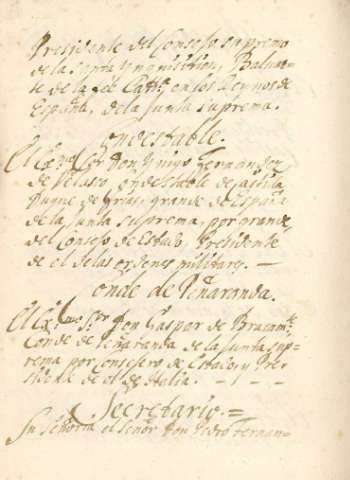 Presidente del Consejo supremo
de la Santa Ynquisicion, Baluar-
te de la fee Cattca. en los Reynos de
España, de la Junta suprema.
Condestable.
El Exmo. Sor. Don Ynigo Fernandez
de Velasco, Condestable de Castilla
Duque de frias, grande de España
de la Junta suprema, por grande,
del Consejo de Estado, Presidente
de el de las ordenes militares. —
Conde de Peñaranda.
El Exmo. Sr. Don Gaspar de Bracamte.
Conde de Peñaranda de la Junta sup-
rema por Consejero de Estado, y Pres-
sidente de el de Italia. —
Secretario. =
Su Señoria el señor Don Pedro Fernan-